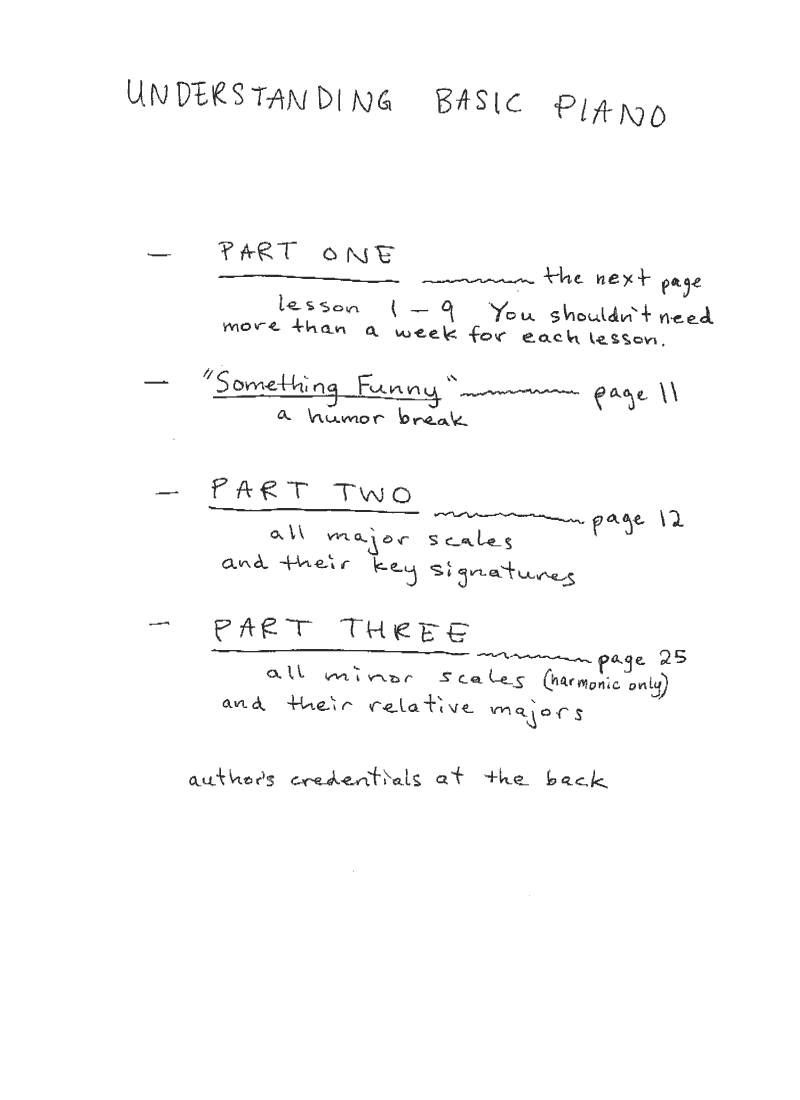 UNDERSTANDING BASIC PIANO
— PART ONE
the next page
lesson 1 – 9 You shouldn't need
more than a week for each lesson.
— "Something Funny" page 11
a humor break
— PART TWO
page 12
all major scales
and their key signatures
— PART THREE
page 25
all minor scales (harmonic only)
and their relative majors
author's credentials at the back